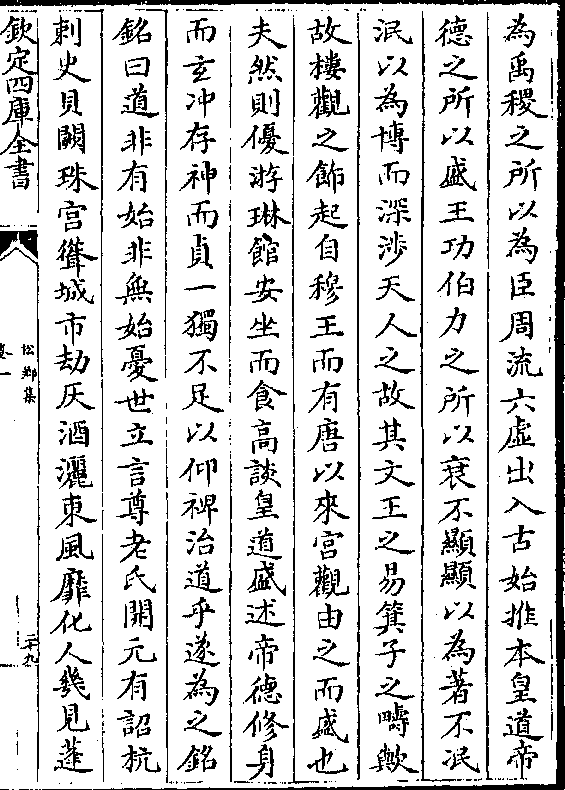 為禹稷之所以為臣周流六虛出入古始推本皇道帝
德之所以盛王功伯力之所以衰不顯顯以為著不泯
泯以為博而深涉天人之故其文王之易箕子之疇歟
故樓觀之飾起自穆王而有唐以來宮觀由之而盛也
夫然則優游琳館安坐而食高談皇道盛述帝德修身
而玄冲存神而貞一獨不足以仰裨治道乎遂為之銘
銘曰道非有始非無始憂世立言尊老氏開元有詔杭
刺史貝闕珠宮聳城市劫灰酒灑東風靡化人幾見蓬
欽定四庫全書
松鄉集
卷一
二十九